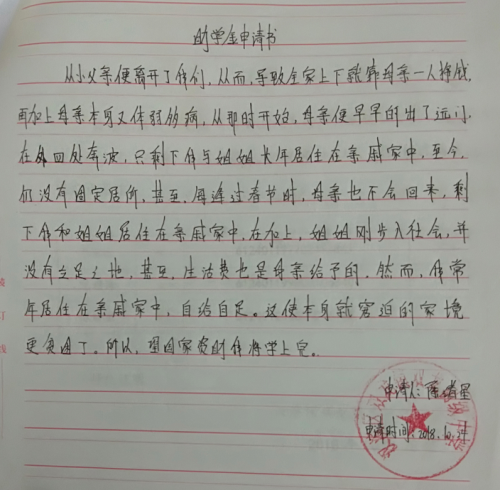 助学金申请书
从小父亲便离开了我们，从而，导致全家上下就靠母亲一人挣钱
再加上母亲本身又体弱多病，从那时开始，母亲便早早的出了远门，
在外四处奔波，只剩下我与姐姐长年居住在亲戚家中，至今，
仍没有固定居所，甚至，每逢过春节时，母亲也不会回来，剩
下我和姐姐居住在亲戚家中，在加上，姐姐刚步入社会，并
没有立足之地，甚至，生活费也是母亲给予的，然而，我常
年居住在亲戚家中，自给自足。这使本身就窘迫的家境
更贫困了。所以，望国家资助我将学上完。
申请人：陈
申请时间：2018.10.
装
订
线